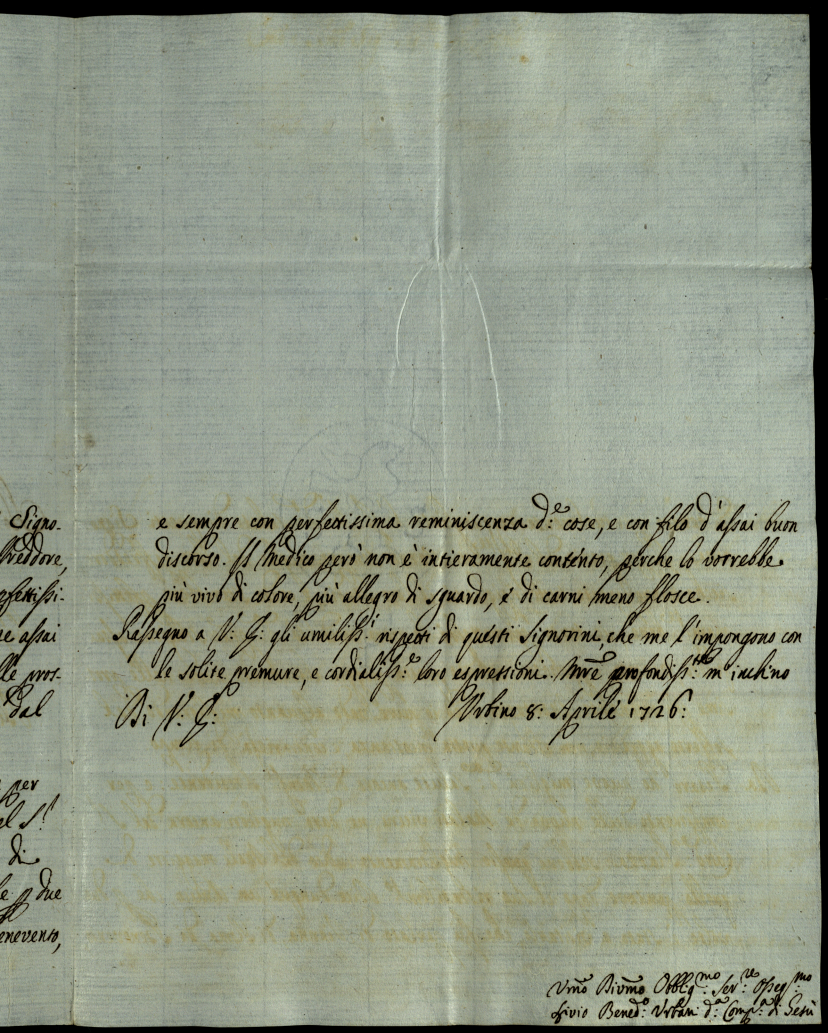 Signo-
Preddore,
rfettissi-
ne assai
lle pros-
dal
per
el S.r
di
le p due
enevento,
e sempre con perfettissima reminiscenza d.e cose, e con filo d'assai buon
discorso. Il Medico però non è intieramente conténto, perche lo vorrebbe
più vivo di colore, più allegro di sguardo, e di carni meno flosce.
Rassegno a V: E: gli umiliss.i rispetti di questi Signorini, che me l'impongono con
le solite premure, e cordialiss.e loro espressioni. Mre profondiss.te m'inchino
Di V: E: Urbino 8: Aprile 1726:
Umo Divmo Obblig.mo Ser.re Osseq.mo
Livio Bened.o Urbani d.a Comp.a di Gesù